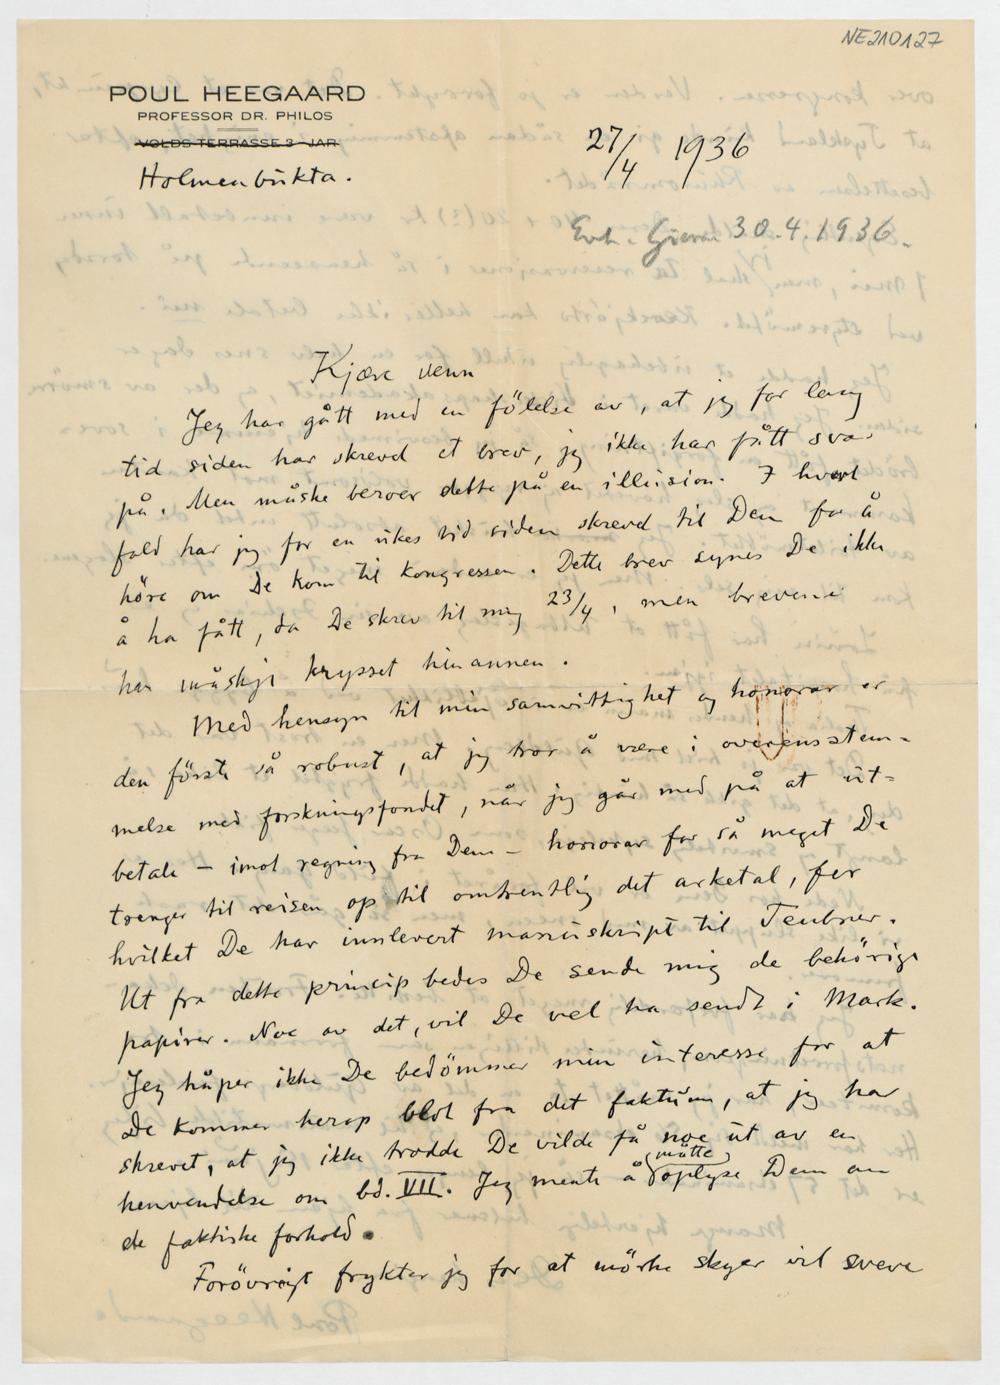 NE210127
POUL HEEGAARD
PROFESSOR DR. PHILOS
VOLDS TERRASSE 3 - JAR
Holmenbukta.
27/4 1936
30.4.1936.
Kjære venn
Jeg har gått med en fölelse av, at jeg for lang
tid siden har skrevet et brev, jeg ikke har fått svar
på. Men måske beroer dette på en illusion. I hvert
fald har jeg for en ukes tid siden skrevet til Dem for å
höre om De kom til kongressen. Dette brev synes De ikke
å ha fått, da De skrev til mig 23/4, men brevene
har måskje krysset hinannen.
Med hensyn til min samvittighet og honorar er
den förste så robust, at jeg tror å være i overensstem-
melse med forskningsfondet, når jeg går med på at ut-
betale – imot regning fra Dem – honorar for så meget De
trenger til reisen op til omtrentlig det arketal, for
hvilket De har innlevert manuskript til Teubner.
Ut fra dette princip bedes De sende mig de behörige
papirer. Noe av det, vil De vel ha sendt i Mark.
Jeg håper ikke De bedömmer min interesse for at
De kommer herop blot fra det faktum, at jeg har
skrevet, at jeg ikke trodde De vilde få noe ut av en
henvendelse om bd. VII. Jeg mente å måtte oplyse Dem om
de faktiske forhold.
Forövrigt frykter jeg for at mörke skyer vil sveve